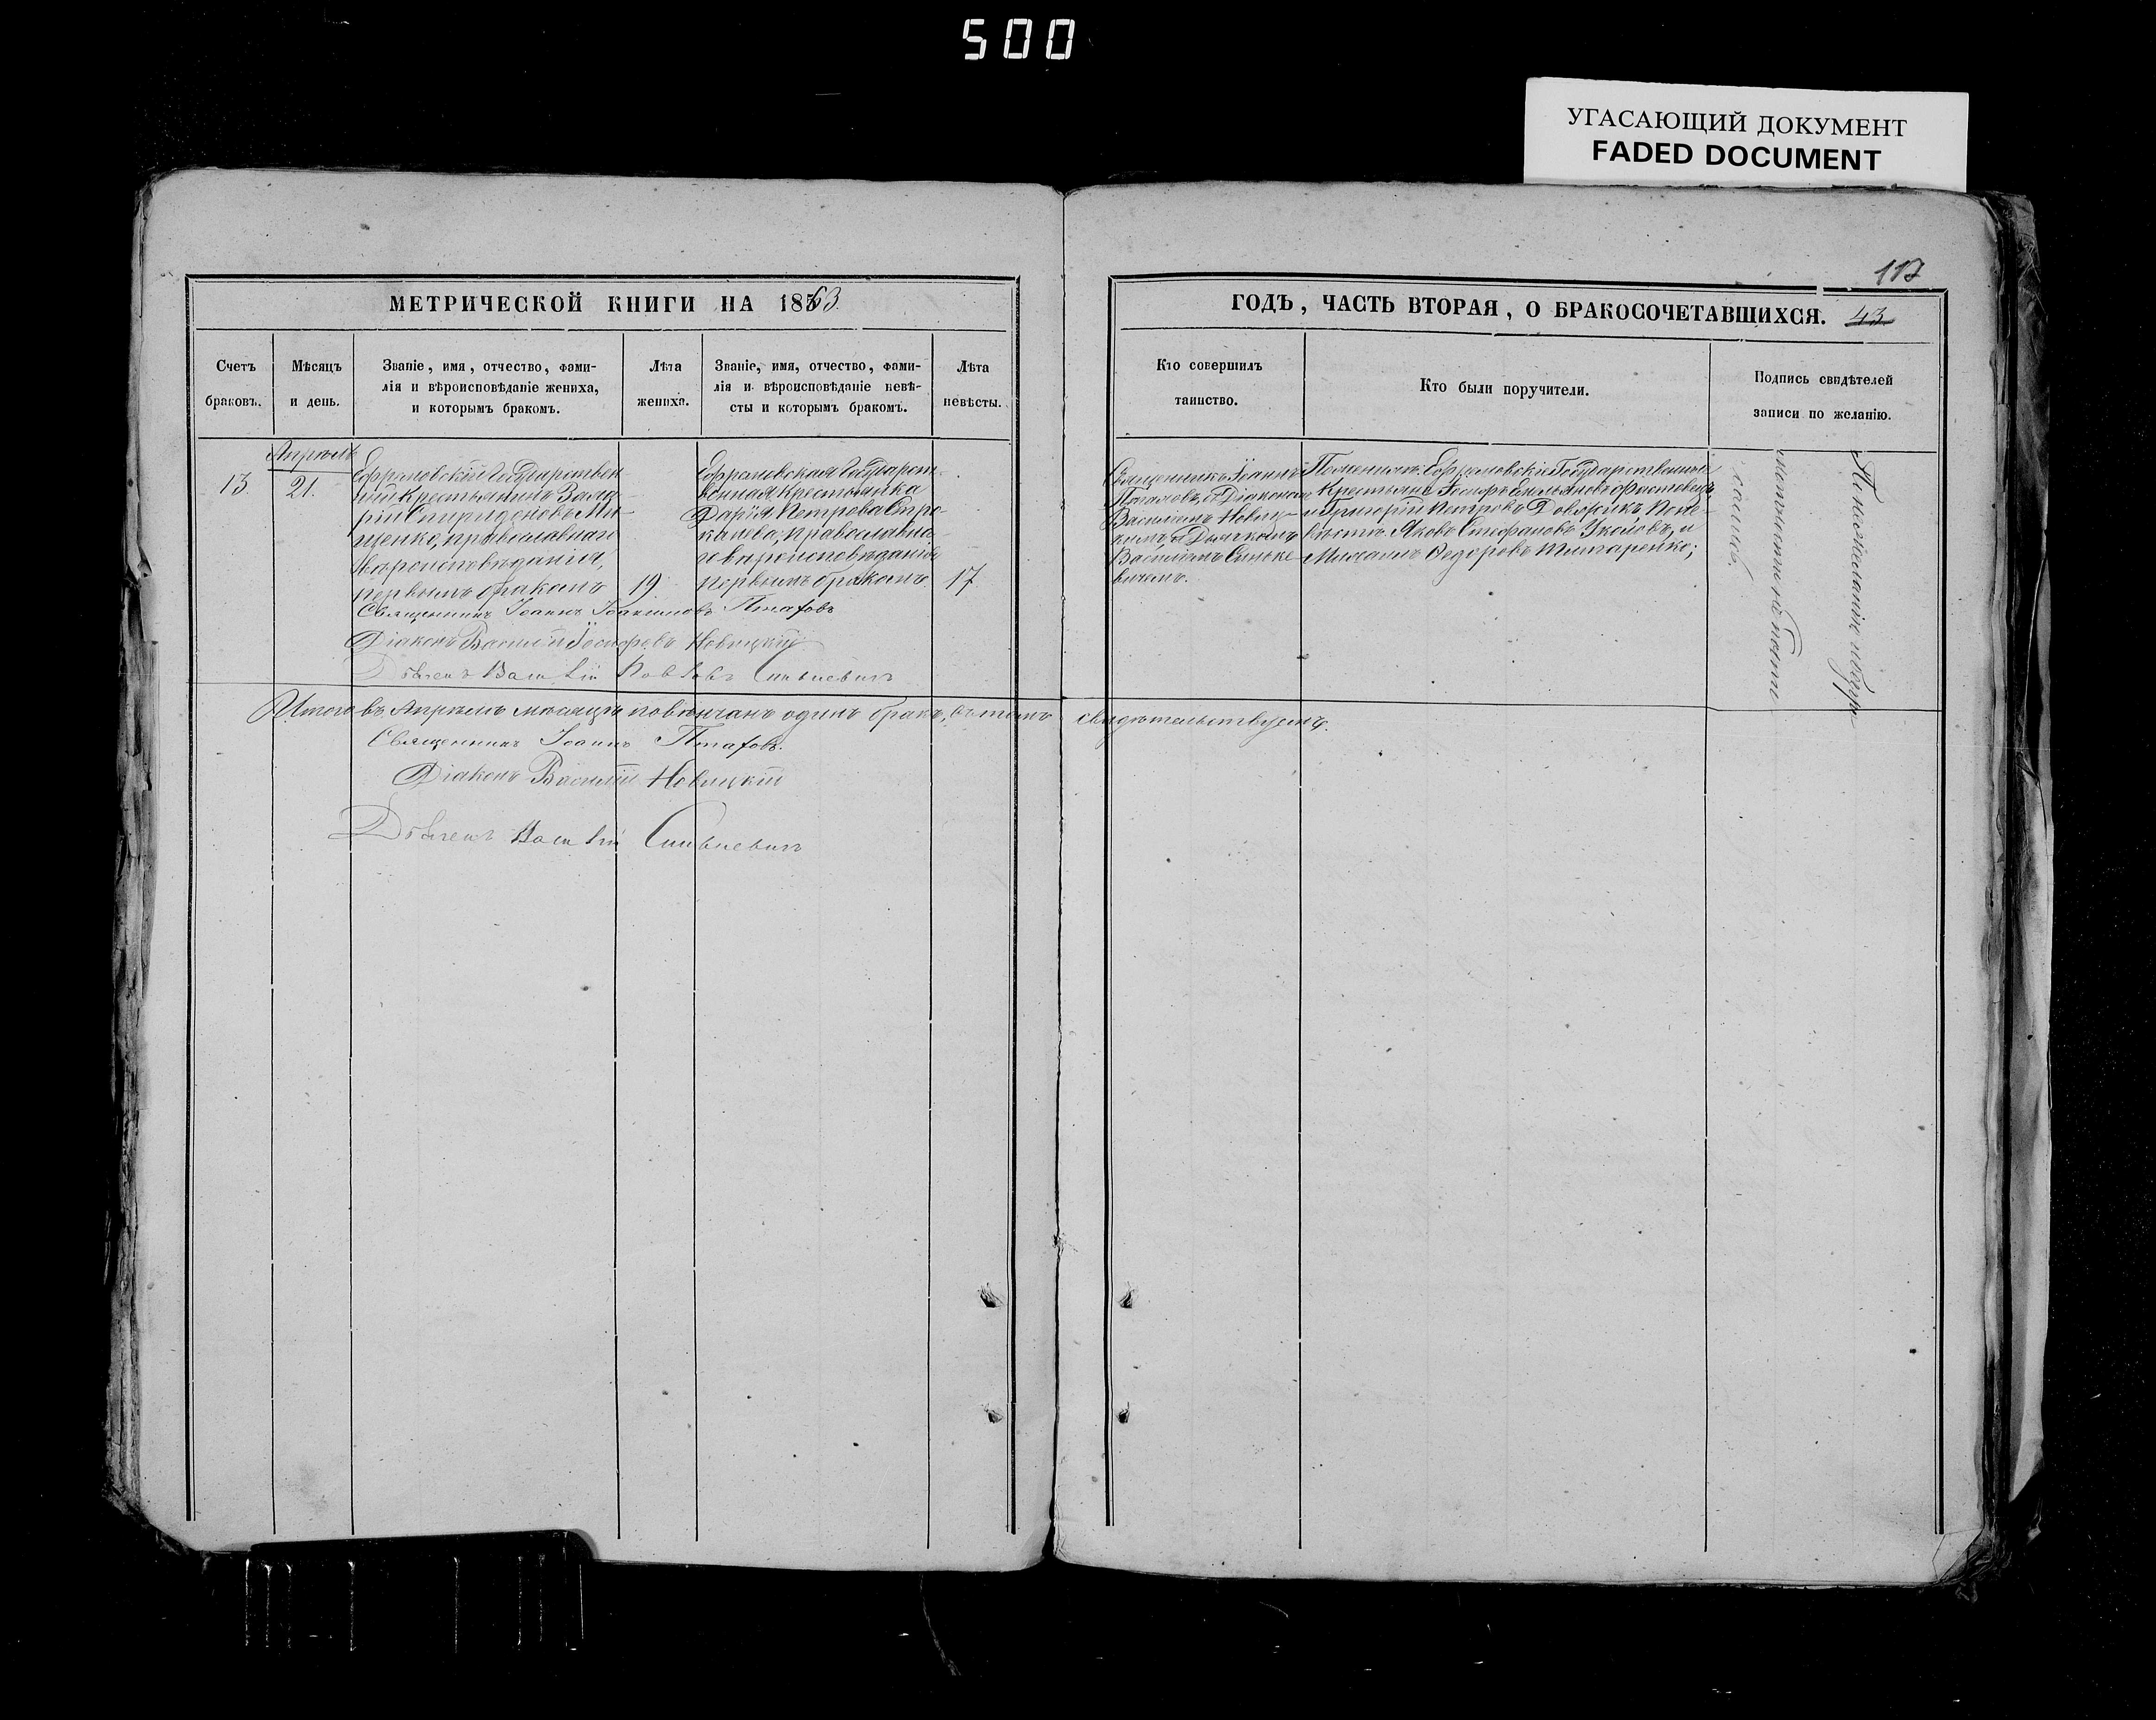 500
УГАСАЮЩИЙ ДОКУМЕНТ
FADED DOCUMENT
117
МЕТРИЧЕСКОЙ КНИГИ НА 1863.
ГОДЪ, ЧАСТЬ ВТОРАЯ, О БРАКОСОЧЕТАВШИХСЯ. 43
Счетъ
браковъ.
Мѣсяцъ
и день.
Званіе, имя, отчество, фами-
лія и вѣроисповѣданіе жениха,
и которымъ бракомъ.
Лѣта
жениха.
Званіе, имя, отчество, фами-
лія и вѣроисповѣданіе невѣ-
сты и которымъ бракомъ.
Лѣта
невѣсты.
Кто совершилъ
таинство.
Кто были поручители.
Подпись свидѣтелей
записи по желанію.
13
Апрѣль
21.
Ефремовскій Государствен-
ный Крестьянинъ Заха-
рій Спиридоновъ Ми-
щенко, православнаго
вѣроисповѣданія,
первымъ бракомъ
19
Ефремовская Государст-
венная Крестьянка
Дарія Петрова Стро-
канева, православна-
го вѣроисповѣданія
первымъ бракомъ
17
Священникъ Іоаннъ
с Діакономъ
Василіемъ Новиц-
кимъ и Дьячкомъ
Василіемъ
По женихѣ: Ефремовскіе Государственные
Крестьяне Іосифъ Емельяновъ
и Григорій Петровъ Довжикъ По не-
вѣстѣ: Яковъ Стефановъ и
Михаилъ Федоровъ Титаренко;
Священникъ Іоаннъ Іоакимовъ
Діаконъ Василій Іосифовъ Новицкій
Василій
Итого въ Апрѣлѣ мѣсяцѣ повѣнчанъ одинъ бракъ, въ томъ свидѣтельствуемъ.
Священникъ Іоаннъ
Діаконъ Василій Новицкій
Василій